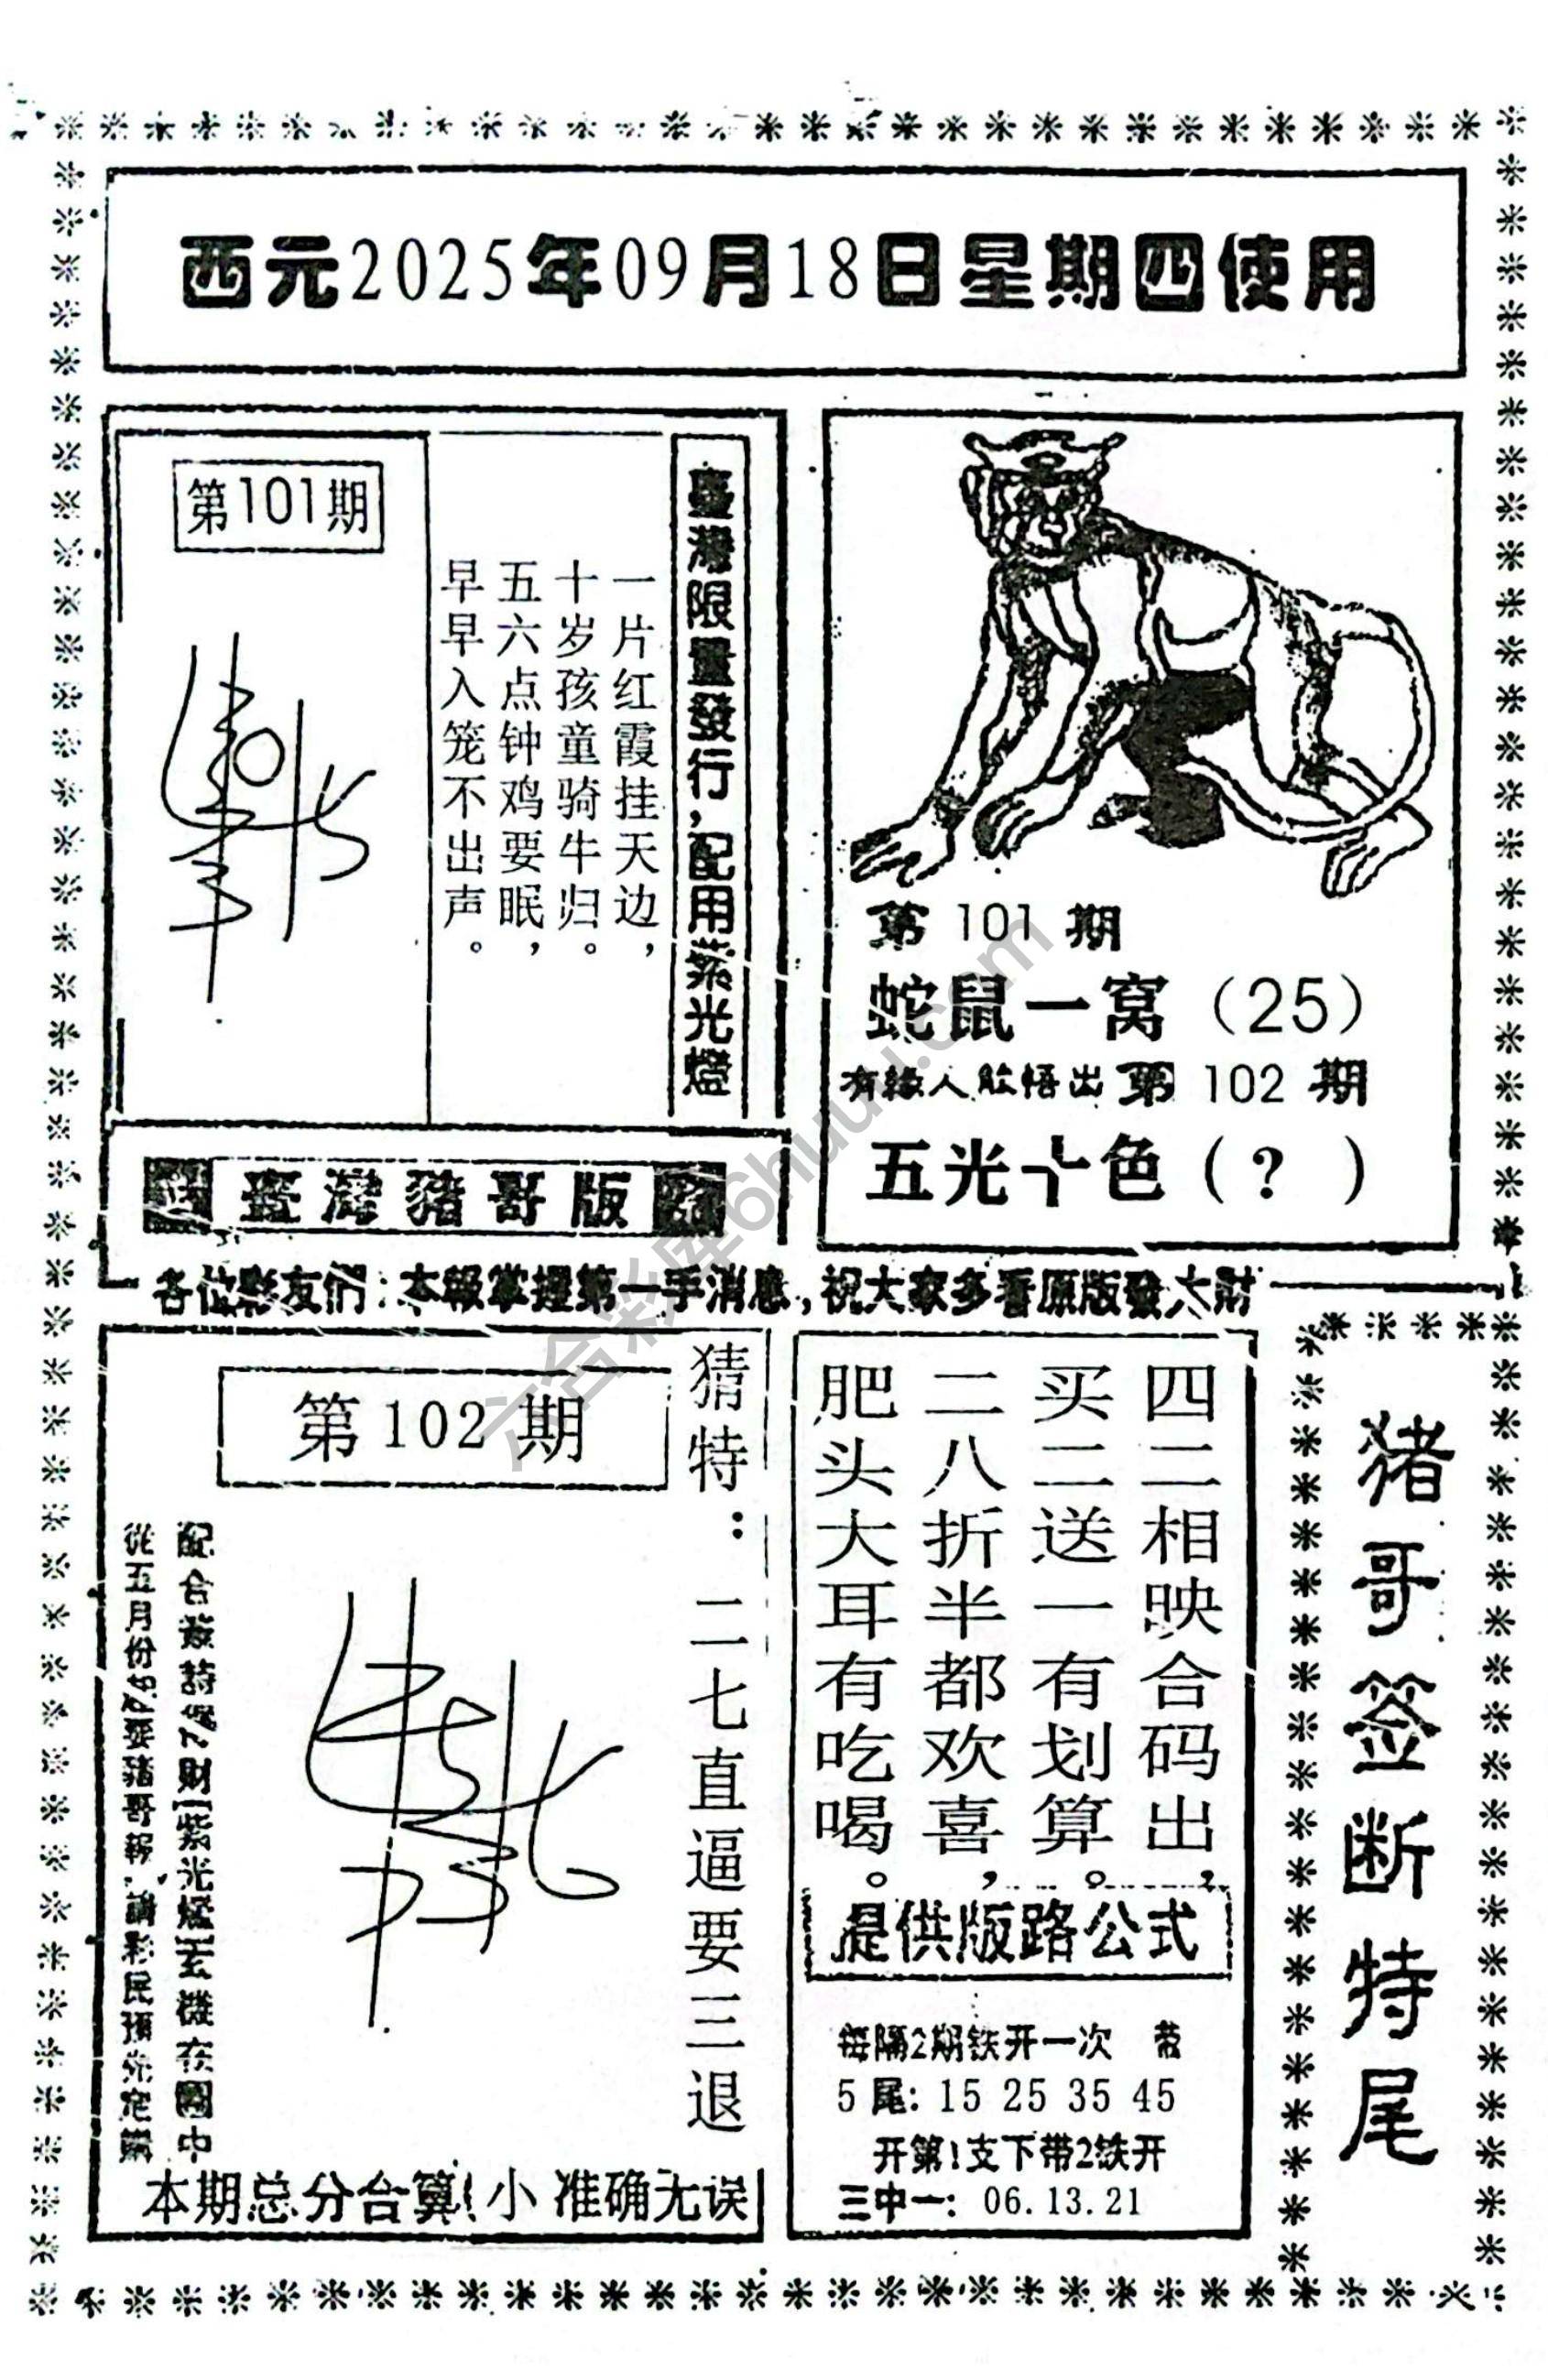 西元2025年09月18日星期四使用
第101期
臺灣限量發行，配用紫光燈
一片红霞挂天边，
十岁孩童骑牛归。
五六点钟鸡要眠，
早早入笼不出声。
臺灣豬哥版
第101期
蛇鼠一窝（25）
有緣人能悟出第102期
五光十色（？）
各位彩友們：本報掌握第一手消息，祝大家多看原版發大財
第102期
猜特：二七直逼要三退
配合簽詩
財[紫光燈]玄機在圖中
從五月份
要豬哥報，請彩民預先定購
本期总分合算！小 准确无误
四二相映合码出，
买二送一有划算。
二八折半都欢喜，
肥头大耳有吃喝。
提供版路公式
每隔2期铁开一次 带
5尾：15 25 35 45
开第1支下带2铁开
三中一：06.13.21
猪哥签断特尾
六合彩库6huuu.com